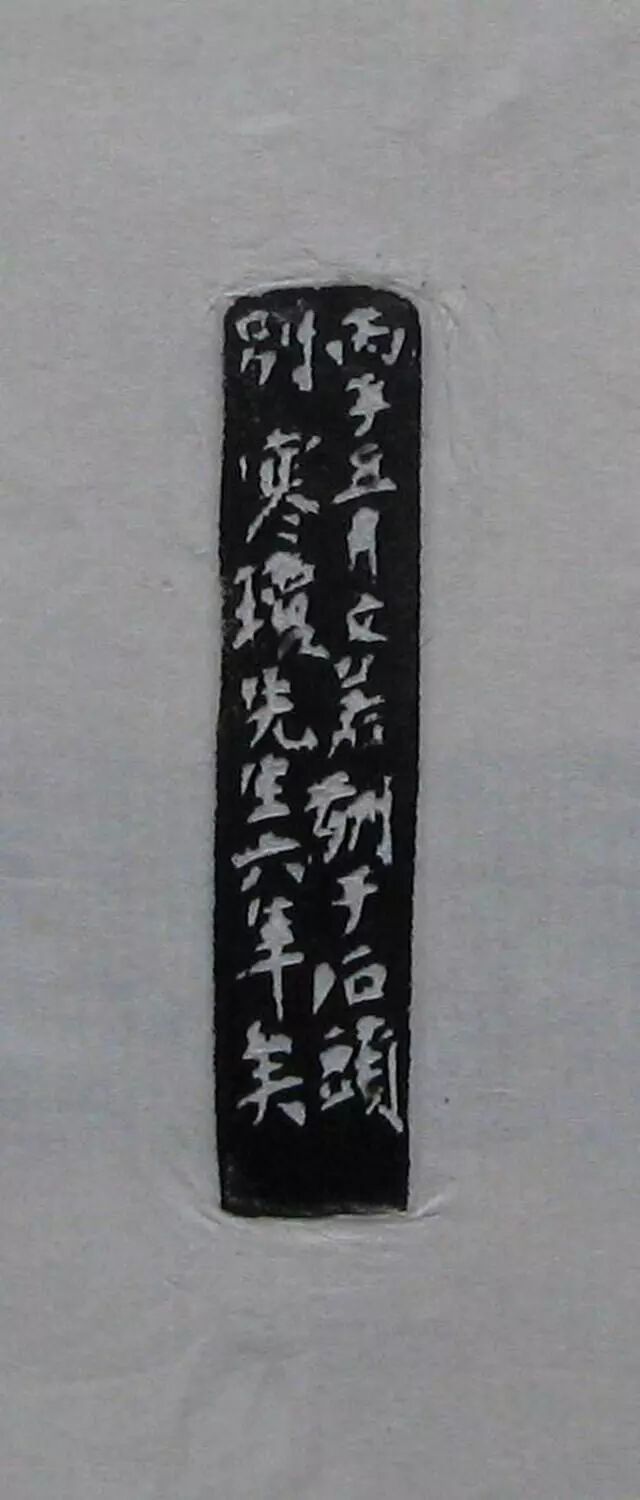 丙子五月文㷼刓于石頭
別 寒瓊先生六年矣